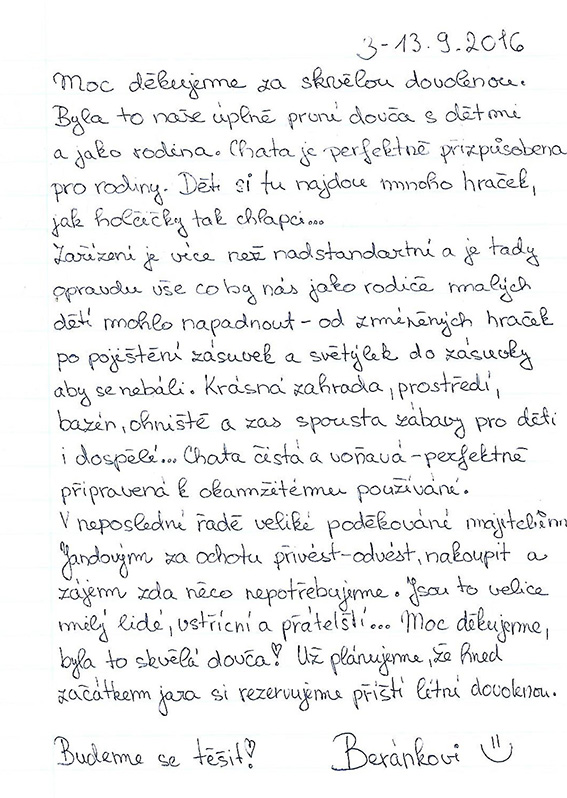 3-13.9.2016
Moc děkujeme za skvělou dovolenou.
Byla to naše úplně první dovča s dětmi
a jako rodina. Chata je perfektně přizpůsobena
pro rodiny. Děti si tu najdou mnoho hraček,
jak holčičky tak chlapci...
Zařízení je více než nadstandartní a je tady
opravdu vše co by nás jako rodiče malých
dětí mohlo napadnout - od zmíněných hraček
po pojištění zásuvek a světýlek do zásuvky
aby se nebáli. Krásná zahrada, prostředí,
bazén, ohniště a zas spousta zábavy pro děti
i dospělé... Chata čistá a voňavá - perfektně
připravená k okamžitému používání.
V neposlední řadě veliké poděkování majitelům
Jandovým za ochotu přivést-odvést, nakoupit a
zájem zda něco nepotřebujeme. Jsou to velice
milý lidé, vstřícní a přátelští... Moc děkujeme,
byla to skvělá dovča! Už plánujeme, že hned
začátkem jara si rezervujeme příští letní dovolenou.
Budeme se těšit! Beránkovi